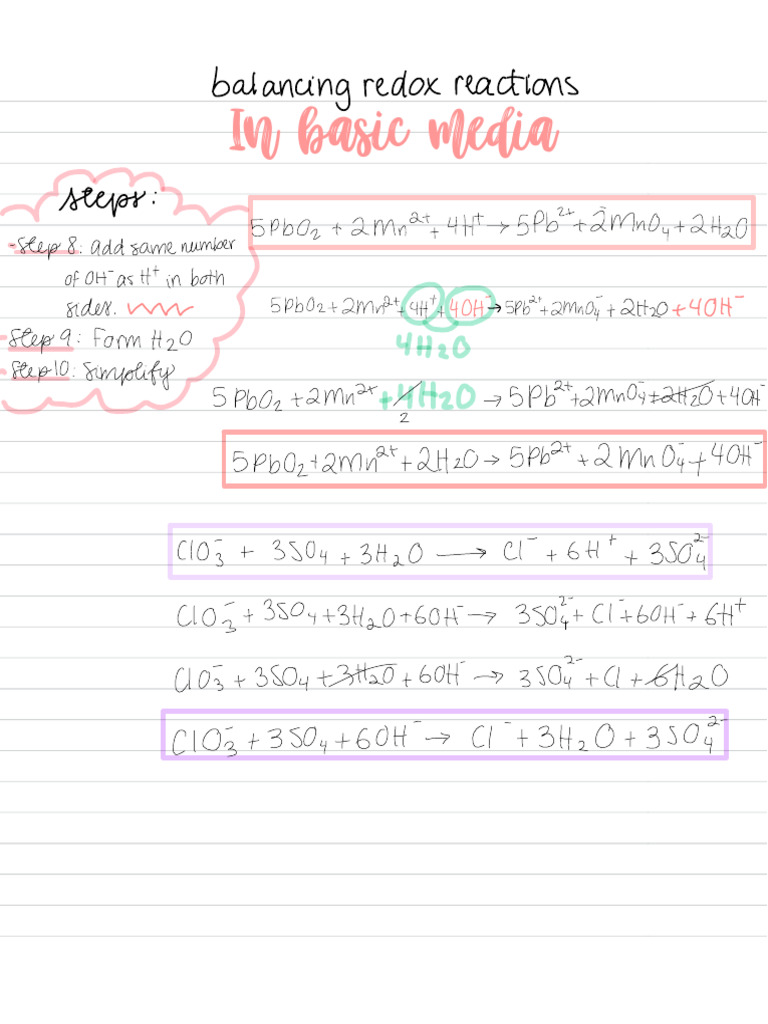 balancing redox reactions
In basic media
steps:
-Step 8: add same number
of OH⁻ as H⁺ in both
sides.
Step 9: Form H₂O
Step 10: Simplify
5PbO₂ + 2Mn²⁺ + 4H⁺ → 5Pb²⁺ + 2MnO₄⁻ + 2H₂O
5PbO₂ + 2Mn²⁺ + 4H⁺ + 4OH⁻ → 5Pb²⁺ + 2MnO₄⁻ + 2H₂O + 4OH⁻
4H₂O
5PbO₂ + 2Mn²⁺ + 4H₂O → 5Pb²⁺ + 2MnO₄⁻ + 2H₂O + 4OH⁻
2
5PbO₂ + 2Mn²⁺ + 2H₂O → 5Pb²⁺ + 2MnO₄⁻ + 4OH⁻
ClO₃⁻ + 3SO₄ + 3H₂O → Cl⁻ + 6H⁺ + 3SO₄²⁻
ClO₃⁻ + 3SO₄ + 3H₂O + 6OH⁻ → 3SO₄²⁻ + Cl⁻ + 6OH⁻ + 6H⁺
ClO₃⁻ + 3SO₄ + 3H₂O + 6OH⁻ → 3SO₄²⁻ + Cl + 6H₂O
ClO₃⁻ + 3SO₄ + 6OH⁻ → Cl⁻ + 3H₂O + 3SO₄²⁻